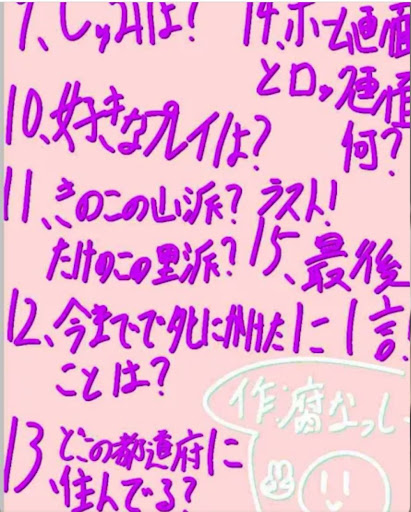 10、好きなプレイは?
11、きのこの山派?
たけのこの里派?
12、今までで死にかけた
ことは?
13、どこの都道府に
住んでる?
14、ホーム画面
とロック画面
何?
ラスト!
15、最後
に1言!
作 腐なっし